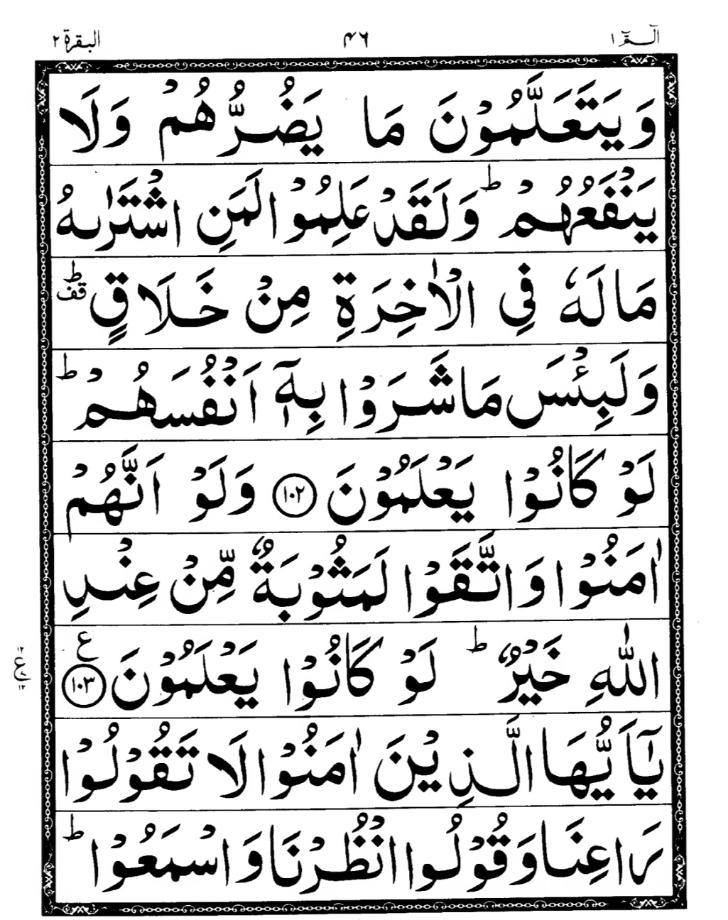 الٓمّٓ ١ ٤٦ البقرة ٢
وَيَتَعَلَّمُوْنَ مَا يَضُرُّهُمْ وَلَا
يَنْفَعُهُمْ ؕ وَلَقَدْ عَلِمُوْا لَمَنِ اشْتَرٰىهُ
مَالَهٗ فِي الْاٰخِرَةِ مِنْ خَلَاقٍ ؕ قف
وَلَبِئْسَ مَا شَرَوْا بِهٖٓ اَنْفُسَهُمْ ؕ
لَوْ كَانُوْا يَعْلَمُوْنَ ﴿١٠٢﴾ وَلَوْ اَنَّهُمْ
اٰمَنُوْا وَاتَّقَوْا لَمَثُوْبَةٌ مِّنْ عِنْدِ
اللّٰهِ خَيْرٌ ؕ لَوْ كَانُوْا يَعْلَمُوْنَ ﴿١٠٣﴾ ع
١٢ ع ١٢
يٰٓاَيُّهَا الَّذِيْنَ اٰمَنُوْا لَا تَقُوْلُوْا
رَاعِنَا وَقُوْلُوا انْظُرْنَا وَاسْمَعُوْا ؕ